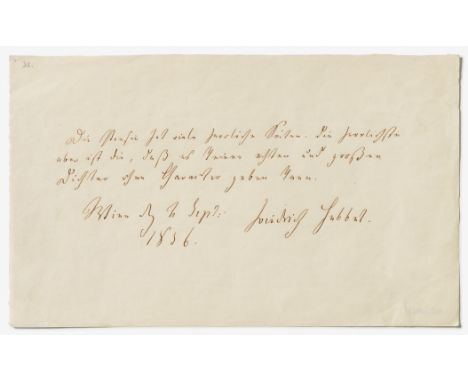 Die Poesie hat viele herrliche Seiten. die herrlichste
aber ist die, daß es keinen ächten und großen
Dichter ohne Character geben kann.
Wien d 2 Sept:
Friedrich Hebbel.
1856.